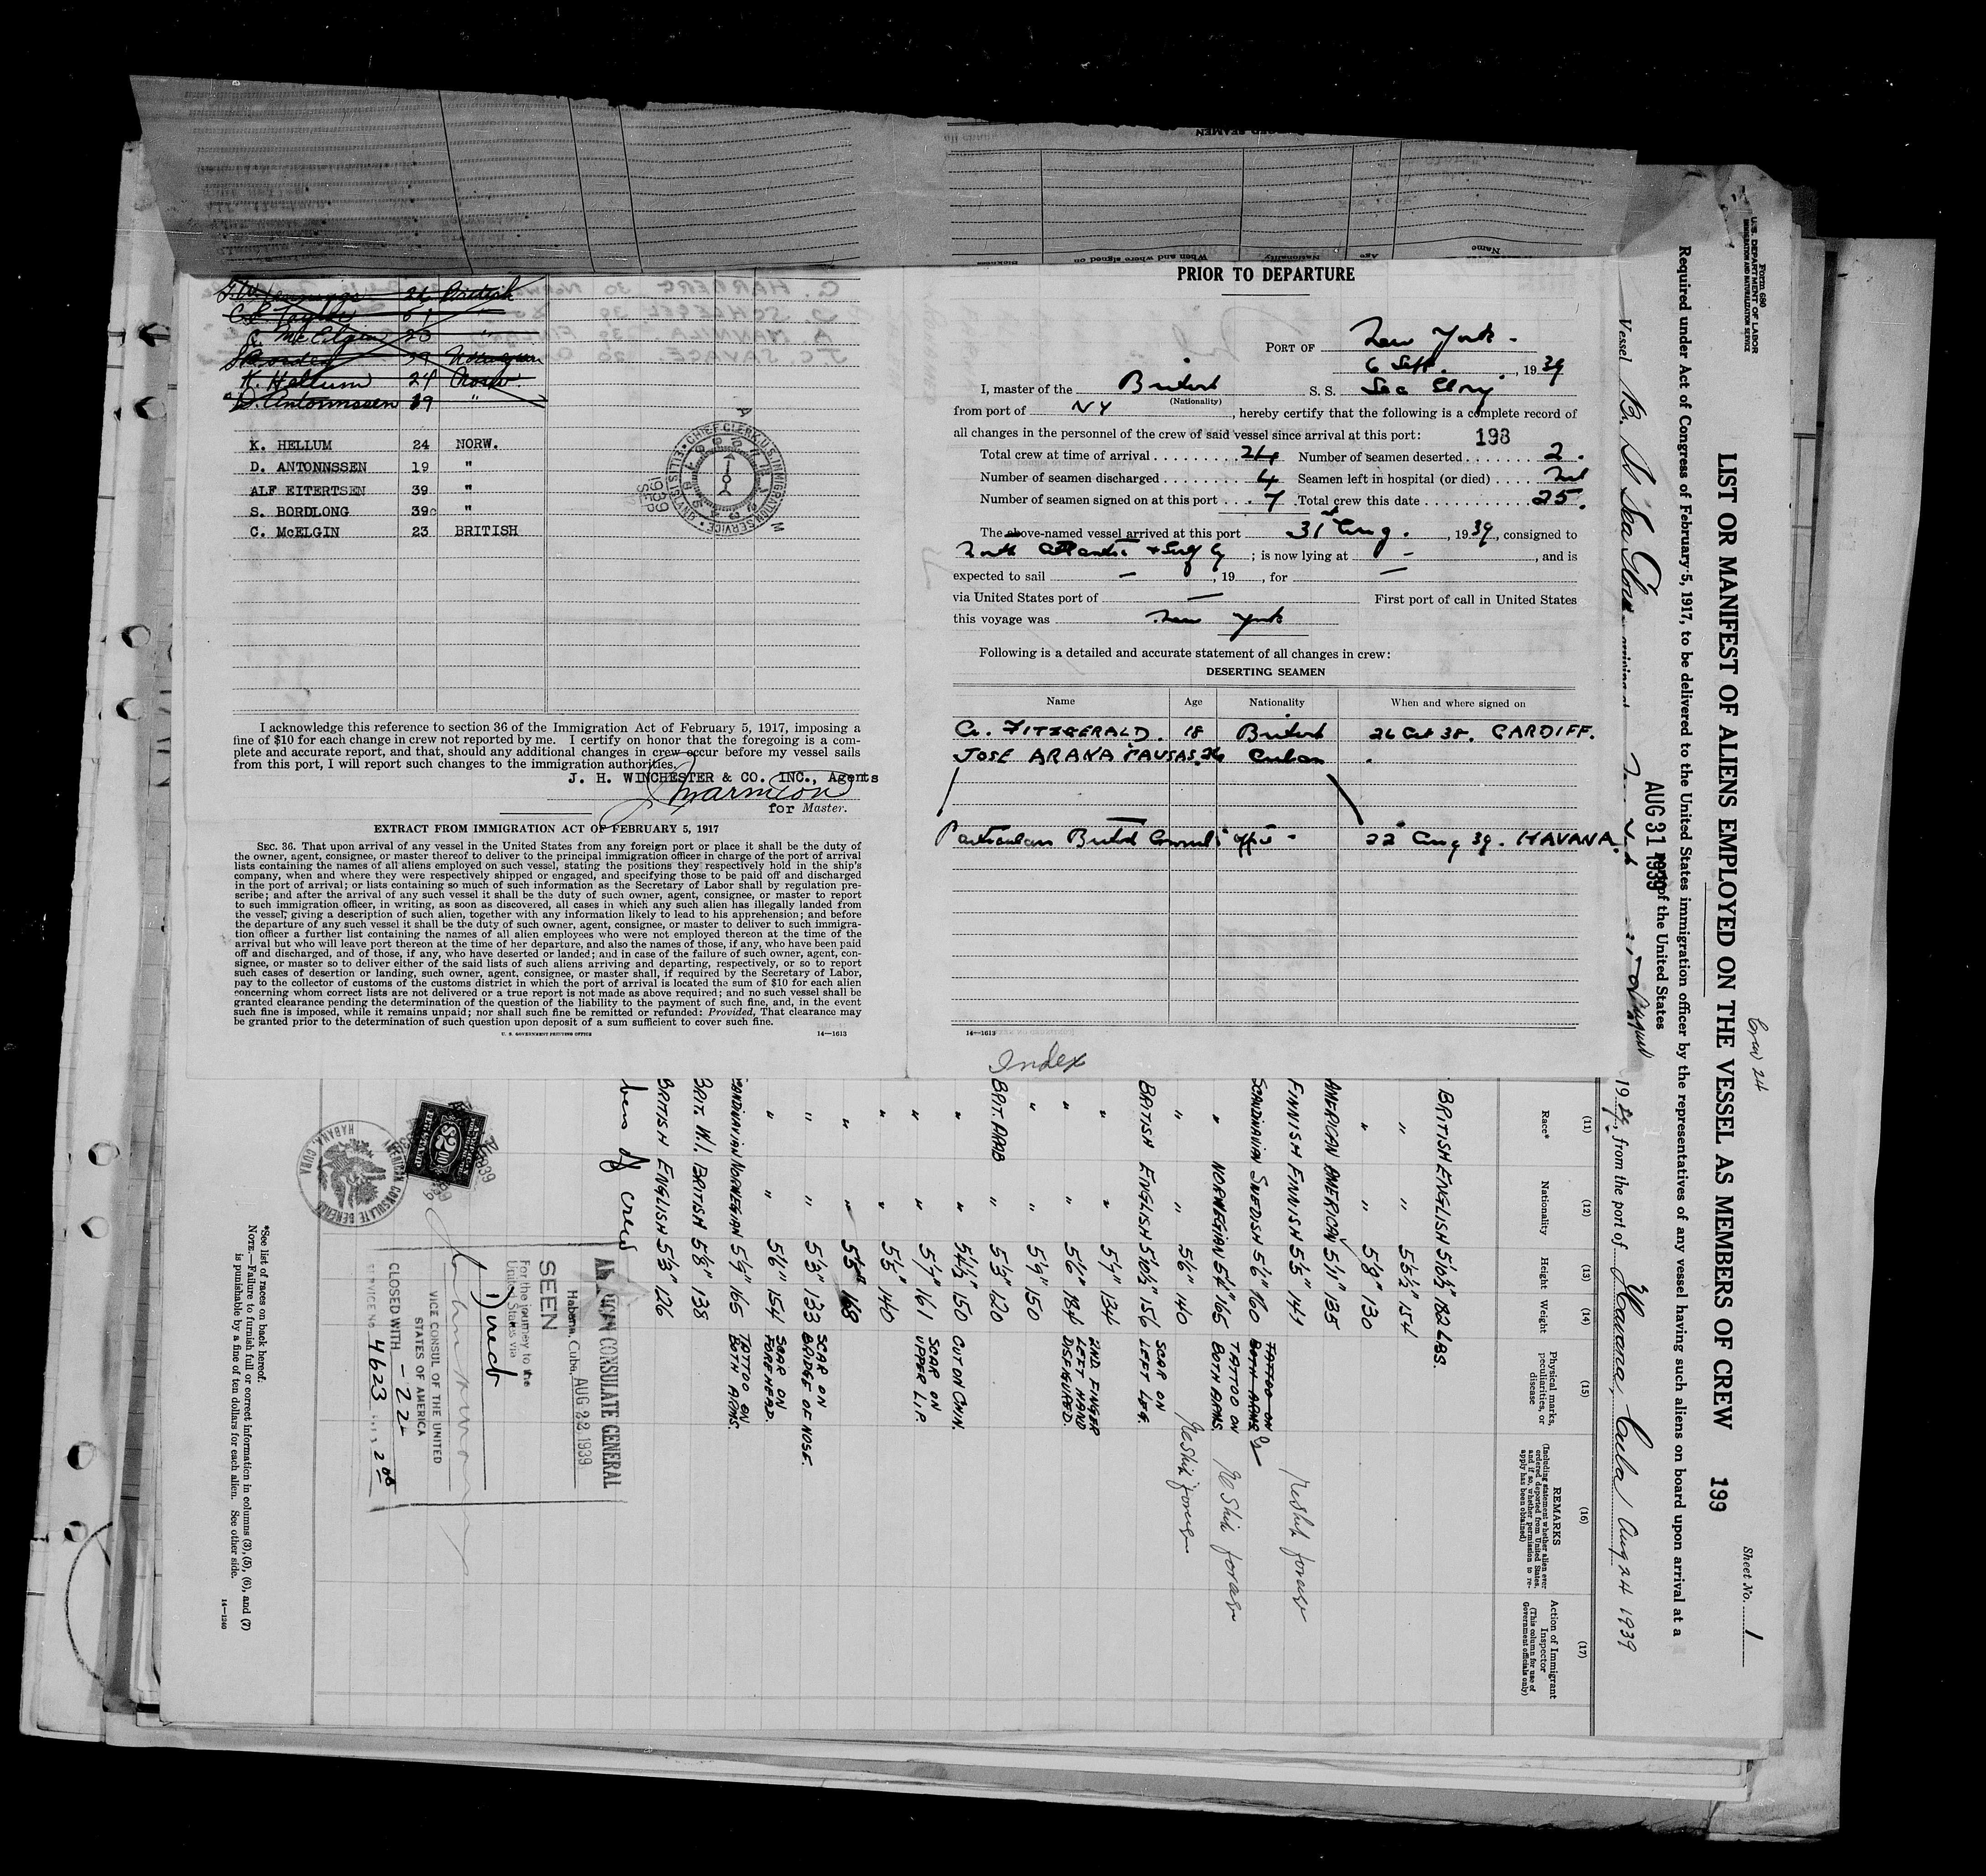 Jennings 26 British
C. E. Taylor 51 "
C. McElgin 23 "
S. Bordlong 39 Norwegian
K. Hellum 24 Norw.
D. Antonnssen 19 "
K. HELLUM 24 NORW.
D. ANTONNSSEN 19 "
ALF EITERTSEN 39 "
S. BORDLONG 39 "
C. McELGIN 23 BRITISH
CHIEF CLERK, U.S. IMMIGRATION SERVICE ELLIS IS., N.Y.
1939 SEP
I acknowledge this reference to section 36 of the Immigration Act of February 5, 1917, imposing a
fine of $10 for each change in crew not reported by me. I certify on honor that the foregoing is a com-
plete and accurate report, and that, should any additional changes in crew occur before my vessel sails
from this port, I will report such changes to the immigration authorities.
J. H. WINCHESTER & CO. INC., Agents
for Master.
EXTRACT FROM IMMIGRATION ACT OF FEBRUARY 5, 1917
SEC. 36. That upon arrival of any vessel in the United States from any foreign port or place it shall be the duty of
the owner, agent, consignee, or master thereof to deliver to the principal immigration officer in charge of the port of arrival
lists containing the names of all aliens employed on such vessel, stating the positions they respectively hold in the ship's
company, when and where they were respectively shipped or engaged, and specifying those to be paid off and discharged
in the port of arrival; or lists containing so much of such information as the Secretary of Labor shall by regulation pre-
scribe; and after the arrival of any such vessel it shall be the duty of such owner, agent, consignee, or master to report
to such immigration officer, in writing, as soon as discovered, all cases in which any such alien has illegally landed from
the vessel, giving a description of such alien, together with any information likely to lead to his apprehension; and before
the departure of any such vessel it shall be the duty of such owner, agent, consignee, or master to deliver to such immigra-
tion officer a further list containing the names of all alien employees who were not employed thereon at the time of the
arrival but who will leave port thereon at the time of her departure, and also the names of those, if any, who have been paid
off and discharged, and of those, if any, who have deserted or landed; and in case of the failure of such owner, agent, con-
signee, or master so to deliver either of the said lists of such aliens arriving and departing, respectively, or so to report
such cases of desertion or landing, such owner, agent, consignee, or master shall, if required by the Secretary of Labor,
pay to the collector of customs of the customs district in which the port of arrival is located the sum of $10 for each alien
concerning whom correct lists are not delivered or a true report is not made as above required; and no such vessel shall be
granted clearance pending the determination of the question of the liability to the payment of such fine, and, in the event
such fine is imposed, while it remains unpaid; nor shall such fine be remitted or refunded: Provided, That clearance may
be granted prior to the determination of such question upon deposit of a sum sufficient to cover such fine.
U. S. GOVERNMENT PRINTING OFFICE 14—1613
PRIOR TO DEPARTURE
PORT OF New York
6 Sept. , 1939
I, master of the British S. S. Sea Glory
(Nationality)
from port of NY , hereby certify that the following is a complete record of
all changes in the personnel of the crew of said vessel since arrival at this port: 198
Total crew at time of arrival 24 Number of seamen deserted 2.
Number of seamen discharged 4 Seamen left in hospital (or died) Nil
Number of seamen signed on at this port 7 Total crew this date 25.
The above-named vessel arrived at this port 31st Aug. , 1939, consigned to
North Atlantic & Gulf ; is now lying at — , and is
expected to sail — , 19 , for —
via United States port of — First port of call in United States
this voyage was New York
Following is a detailed and accurate statement of all changes in crew:
DESERTING SEAMEN
Name Age Nationality When and where signed on
G. FITZGERALD. 18 British 26 Oct 38. CARDIFF.
JOSE ARANA PAUSAS. 26 Cuban
22 Aug 39. HAVANA.
14—1613
Index
Form 680
U. S. DEPARTMENT OF LABOR
IMMIGRATION AND NATURALIZATION SERVICE
Crew 24
Sheet No. 1
LIST OR MANIFEST OF ALIENS EMPLOYED ON THE VESSEL AS MEMBERS OF CREW 199
Required under Act of Congress of February 5, 1917, to be delivered to the United States immigration officer by the representatives of any vessel having such aliens on board upon arrival at a
port of the United States
AUG 31 1939
Vessel Br. SS Sea Glory arriving at August 1939, from the port of Havana, Cuba, Aug 24 1939
(11) (12) (13) (14) (15) (16) (17)
Race* Nationality Height Weight Physical marks, peculiarities, or disease
REMARKS (Including statement whether alien ever ordered deported from United States, and if so, whether permission to re-apply has been obtained)
Action of Immigrant Inspector (This column for use of Government officials only)
BRITISH ENGLISH 5'10½" 182 LBS.
" " 5'5½" 154
" " 5'8" 130
AMERICAN AMERICAN 5'11" 135
FINNISH FINNISH 5'5" 141
SCANDINAVIAN SWEDISH 5'6" 160 TATTOO ON BOTH ARMS
" NORWEGIAN 165 TATTOO ON BOTH ARMS.
" " 5'6" 140
BRITISH ENGLISH 5'10½" 156 SCAR ON LEFT LEG.
" " 5'7" 134
" " 5'6" 184 2ND. FINGER LEFT HAND DISFIGURED.
" " 5'9" 150
BRIT. ARAB " 5'3" 120
" " 5'4½" 150 CUT ON CHIN.
" " 5'7" 161 SCAR ON UPPER LIP.
" " 5'5" 140
" " 5'5" 168
" " 5'3" 133 SCAR ON BRIDGE OF NOSE.
" " 5'6" 154 SCAR ON FOREHEAD.
SCANDINAVIAN NORWEGIAN 5'9" 165 TATTOO ON BOTH ARMS.
BRIT. W.I. BRITISH 5'8" 138
BRITISH ENGLISH 5'3" 126
of crew
AMERICAN CONSULATE GENERAL
Habana, Cuba, AUG 22 1939
SEEN
For the journey to the
United States via
Direct
VICE CONSUL OF THE UNITED
STATES OF AMERICA
CLOSED WITH —22—
SERVICE NO. 4623
AMERICAN CONSULATE GENERAL HABANA, CUBA
$2.00
*See list of races on back hereof.
NOTE.—Failure to furnish full or correct information in columns (3), (5), (6), and (7)
is punishable by a fine of ten dollars for each alien. See other side.
14—1240